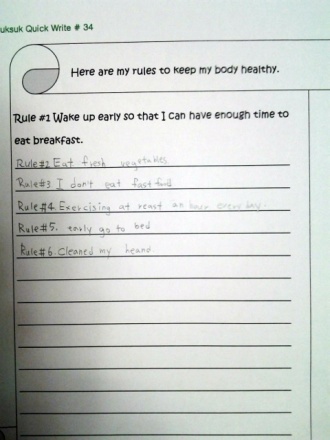 uksuk Quick Write # 34
Here are my rules to keep my body healthy.
Rule #1 Wake up early so that I can have enough time to
eat breakfast.
Rule#2 Eat fresh vegetables
Rule#3 I don't eat fast food
Rule#4. Exercising at reast an hour every day.
Rule#5. early go to bed
Rule#6 Cleaned my heand